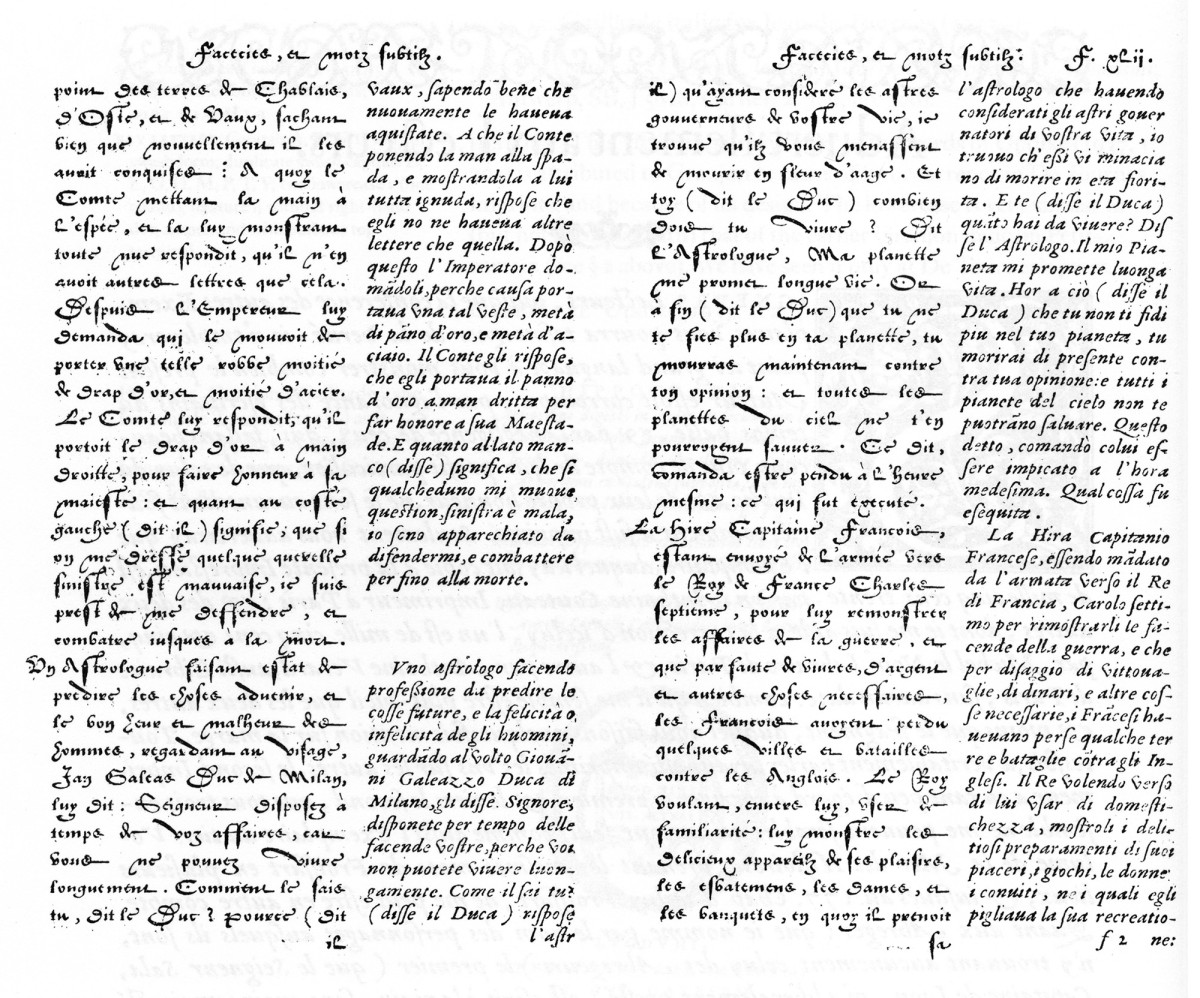 Facecies, et motz subtilz.
point des terres de Chablais,
d'Oste, et de Vaux, sachant
bien que nouvellement il les
avoit conquises : A quoy le
Comte mettant la main a
l'espée, et la luy monstrant
toute nue respondit, qu'il n'en
avoit autres lettres que cela.
Despuis l'Empereur luy
demanda qui le mouvoit de
porter une telle robbe moitie
de drap d'or, et moitié d'acier
Le Comte luy respondit, qu'il
portoit le drap d'or a main
droitte, pour faire honneur a sa
maiesté : et quant au costé
gauche (dit il) signifie, que si
on me dresse quelque querelle
sinistre est mauvaise, ie suis
prest de me deffendre, et
combatre iusques a la mort.
Un Astrologue faisant estat de
predire les choses advenir, et
le bon heur et malheur des
hommes, regardant au visage,
Jan Galeas Duc de Milan,
luy dit : Seigneur disposez a
temps de voz affaires, car
vous ne pouvez vivre
longuement. Comment le sais
tu, dit le Duc? pource (dit
il
vaux, sapendo bene che
nuouamente le haueua
aquistate. A che il Conte
ponendo la man alla spa-
da, e mostrandola a lui
tutta ignuda, rispose che
egli no ne haueua altre
lettere che quella. Dopò
questo l'Imperatore do-
mādoli, perche causa por-
taua vna tal veste, metà
di pāno d'oro, e metà d'a-
ciaio. Il Conte gli rispose,
che egli portaua il panno
d'oro a man dritta per
far honore a sua Maesta-
de. E quanto al lato man-
co (disse) significa, che si
qualcheduno mi muoue
question sinistra è mala,
io sono apparechiato da
difendermi, e combattere
per fino alla morte.
Vno astrologo facendo
professione da predire lo
cosse future, e la felicità o,
infelicità de gli huomini,
guardādo al volto Giouā-
ni Galeazzo Duca di
Milano, gli disse. Signore,
disponete per tempo delle
facende vostre, perche voi
non puotete viuere luon-
gamente. Come il sai tu?
(disse il Duca) rispose
l'astr
Facecies, et motz subtilz. F. xlij.
il) qu'ayant consideré les astres
gouverneurs de vostre vie, ie
trouve qu'ilz vous menassent
de mourir en fleur d'aage. Et
toy (dit le Duc) combien
dois tu vivre? Dit
l'Astrologue, Ma planette
me promet longue vie. Or
a fin (dit le Duc) que tu ne
te fies plus en ta planette, tu
mourras maintenant contre
ton opinion et toutes les
planettes du ciel ne t'en
porrogent sauver. Ce dit,
comanda estre pendu a l'heure
mesme : ce qui fut executé.
La Hire Capitaine Francois
estant envoyé de l'armée vers
le Roy de France Charles
septiéme, pour luy monstrer
les affaires de la guerre, et
que par faute de vivres, d'argent
et autres choses necessaires,
les Francois avoyent perdu
quelques villes et batailles
contre les Anglois. Le Roy
voulant, envers luy, user de
familiarité : luy monstre les
delicieux appareilz de ses plaisirs,
les esbatemens, les dames, et
les banquets, en quoy il prenoit
sa
l'astrologo che hauendo
considerati gli astri gouer
natori di vostra vita, io
truouo ch'essi vi minacia
no di morire in eta fiori-
ta. E te (disse il Duca)
quāto hai da viuere? Dis
se l'Astrologo. Il mio Pia-
neta mi promette luonga
vita. Hor a ciò (disse il
Duca) che tu non ti fidi
piu nel tuo pianeta, tu
morirai di presente con-
tra tua opinione: e tutti i
pianete del cielo non te
puotrāno saluare. Questo
detto, comandò colui es-
sere impicato a l'hora
medesima. Qual cossa fu
esequita.
La Hira Capitanio
Francese, essendo mādato
da l'armata verso il Re
di Francia, Carolo setti-
mo per rimostrarli le fa-
cende della guerra, e che
per disagio di Vittoua-
glie, di dinari, e altre cos-
se necessarie, i Frācesi ha-
ueuano perse qualche ter
re e bataglie cōtra gli In-
glesi. Il Re volendo verso
di lui usar di domesti-
chezza, mostroli i delic
tiosi preparamenti di suoi
piaceri, i giochi, le donne:
i conuiti, ne i quali egli
pigliaua la sua recreatio-
f 2 ne: